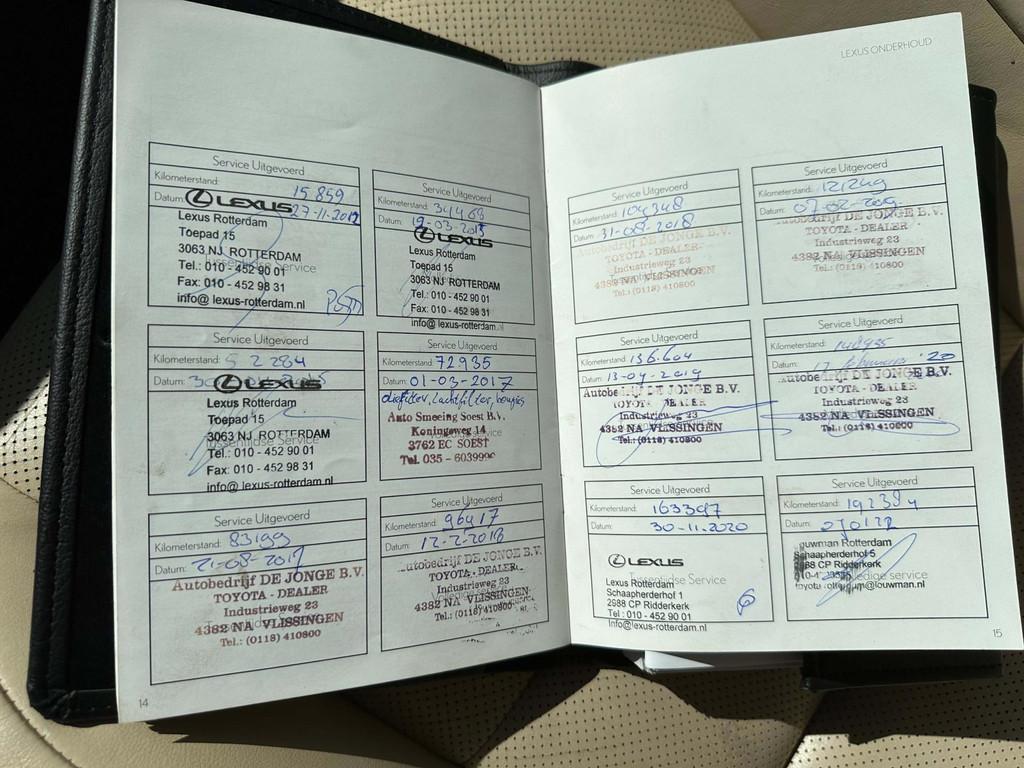 LEXUS ONDERHOUD
Service Uitgevoerd
Kilometerstand: 15 859
Datum: 27-11-2012
LEXUS
Lexus Rotterdam
Toepad 15
3063 NJ ROTTERDAM
Tel.: 010 - 452 90 01
Fax: 010 - 452 98 31
info@lexus-rotterdam.nl
Service Uitgevoerd
Kilometerstand: 34469
Datum: 19-03-2015
LEXUS
Lexus Rotterdam
Toepad 15
3063 NJ ROTTERDAM
Tel.: 010 - 452 90 01
Fax: 010 - 452 98 31
info@lexus-rotterdam.nl
Service Uitgevoerd
Kilometerstand: 52284
Datum: 30
LEXUS
Lexus Rotterdam
Toepad 15
3063 NJ ROTTERDAM
Tussentijdse Service
Tel.: 010 - 452 90 01
Fax: 010 - 452 98 31
info@lexus-rotterdam.nl
Service Uitgevoerd
Kilometerstand: 72935
Datum: 01-03-2017
oliefilter, luchtfilter, bougies
Auto Smeeing Soest B.V.
Koningsweg 14
3762 EC SOEST
Tel. 035 - 6039990
Service Uitgevoerd
Kilometerstand: 83199
Datum: 21-08-2017
Autobedrijf DE JONGE B.V.
TOYOTA - DEALER
Industrieweg 23
4382 NA VLISSINGEN
Tel.: (0118) 410800
Service Uitgevoerd
Kilometerstand: 96417
Datum: 12-2-2018
Autobedrijf DE JONGE B.V.
TOYOTA - DEALER
Industrieweg 23
4382 NA VLISSINGEN
Tel.: (0118) 410800
14
Service Uitgevoerd
Kilometerstand: 104348
Datum: 31-08-2018
Autobedrijf DE JONGE B.V.
TOYOTA - DEALER
Industrieweg 23
4382 NA VLISSINGEN
Tel.: (0118) 410800
Service Uitgevoerd
Kilometerstand: 121249
Datum:
Autobedrijf DE JONGE B.V.
TOYOTA - DEALER
Industrieweg 23
4382 NA VLISSINGEN
Tel.: (0118) 410800
Service Uitgevoerd
Kilometerstand: 136.604
Datum: 13-09-2019
Autobedrijf DE JONGE B.V.
TOYOTA - DEALER
Industrieweg 23
4382 NA VLISSINGEN
Tel.: (0118) 410800
Service Uitgevoerd
Kilometerstand:
Datum: '20
Autobedrijf DE JONGE B.V.
TOYOTA - DEALER
Industrieweg 23
4382 NA VLISSINGEN
Tel.: (0118) 410800
Service Uitgevoerd
Kilometerstand: 163397
Datum: 30-11-2020
LEXUS
Tussentijdse Service
Lexus Rotterdam
Schaapherderhof 1
2988 CP Ridderkerk
Tel : 010 - 452 90 01
Info@lexus-rotterdam.nl
Service Uitgevoerd
Kilometerstand: 192384
Datum:
ouwman Rotterdam
Schaapherderhof 5
88 CP Ridderkerk
Volledige service
@louwman.nl
15